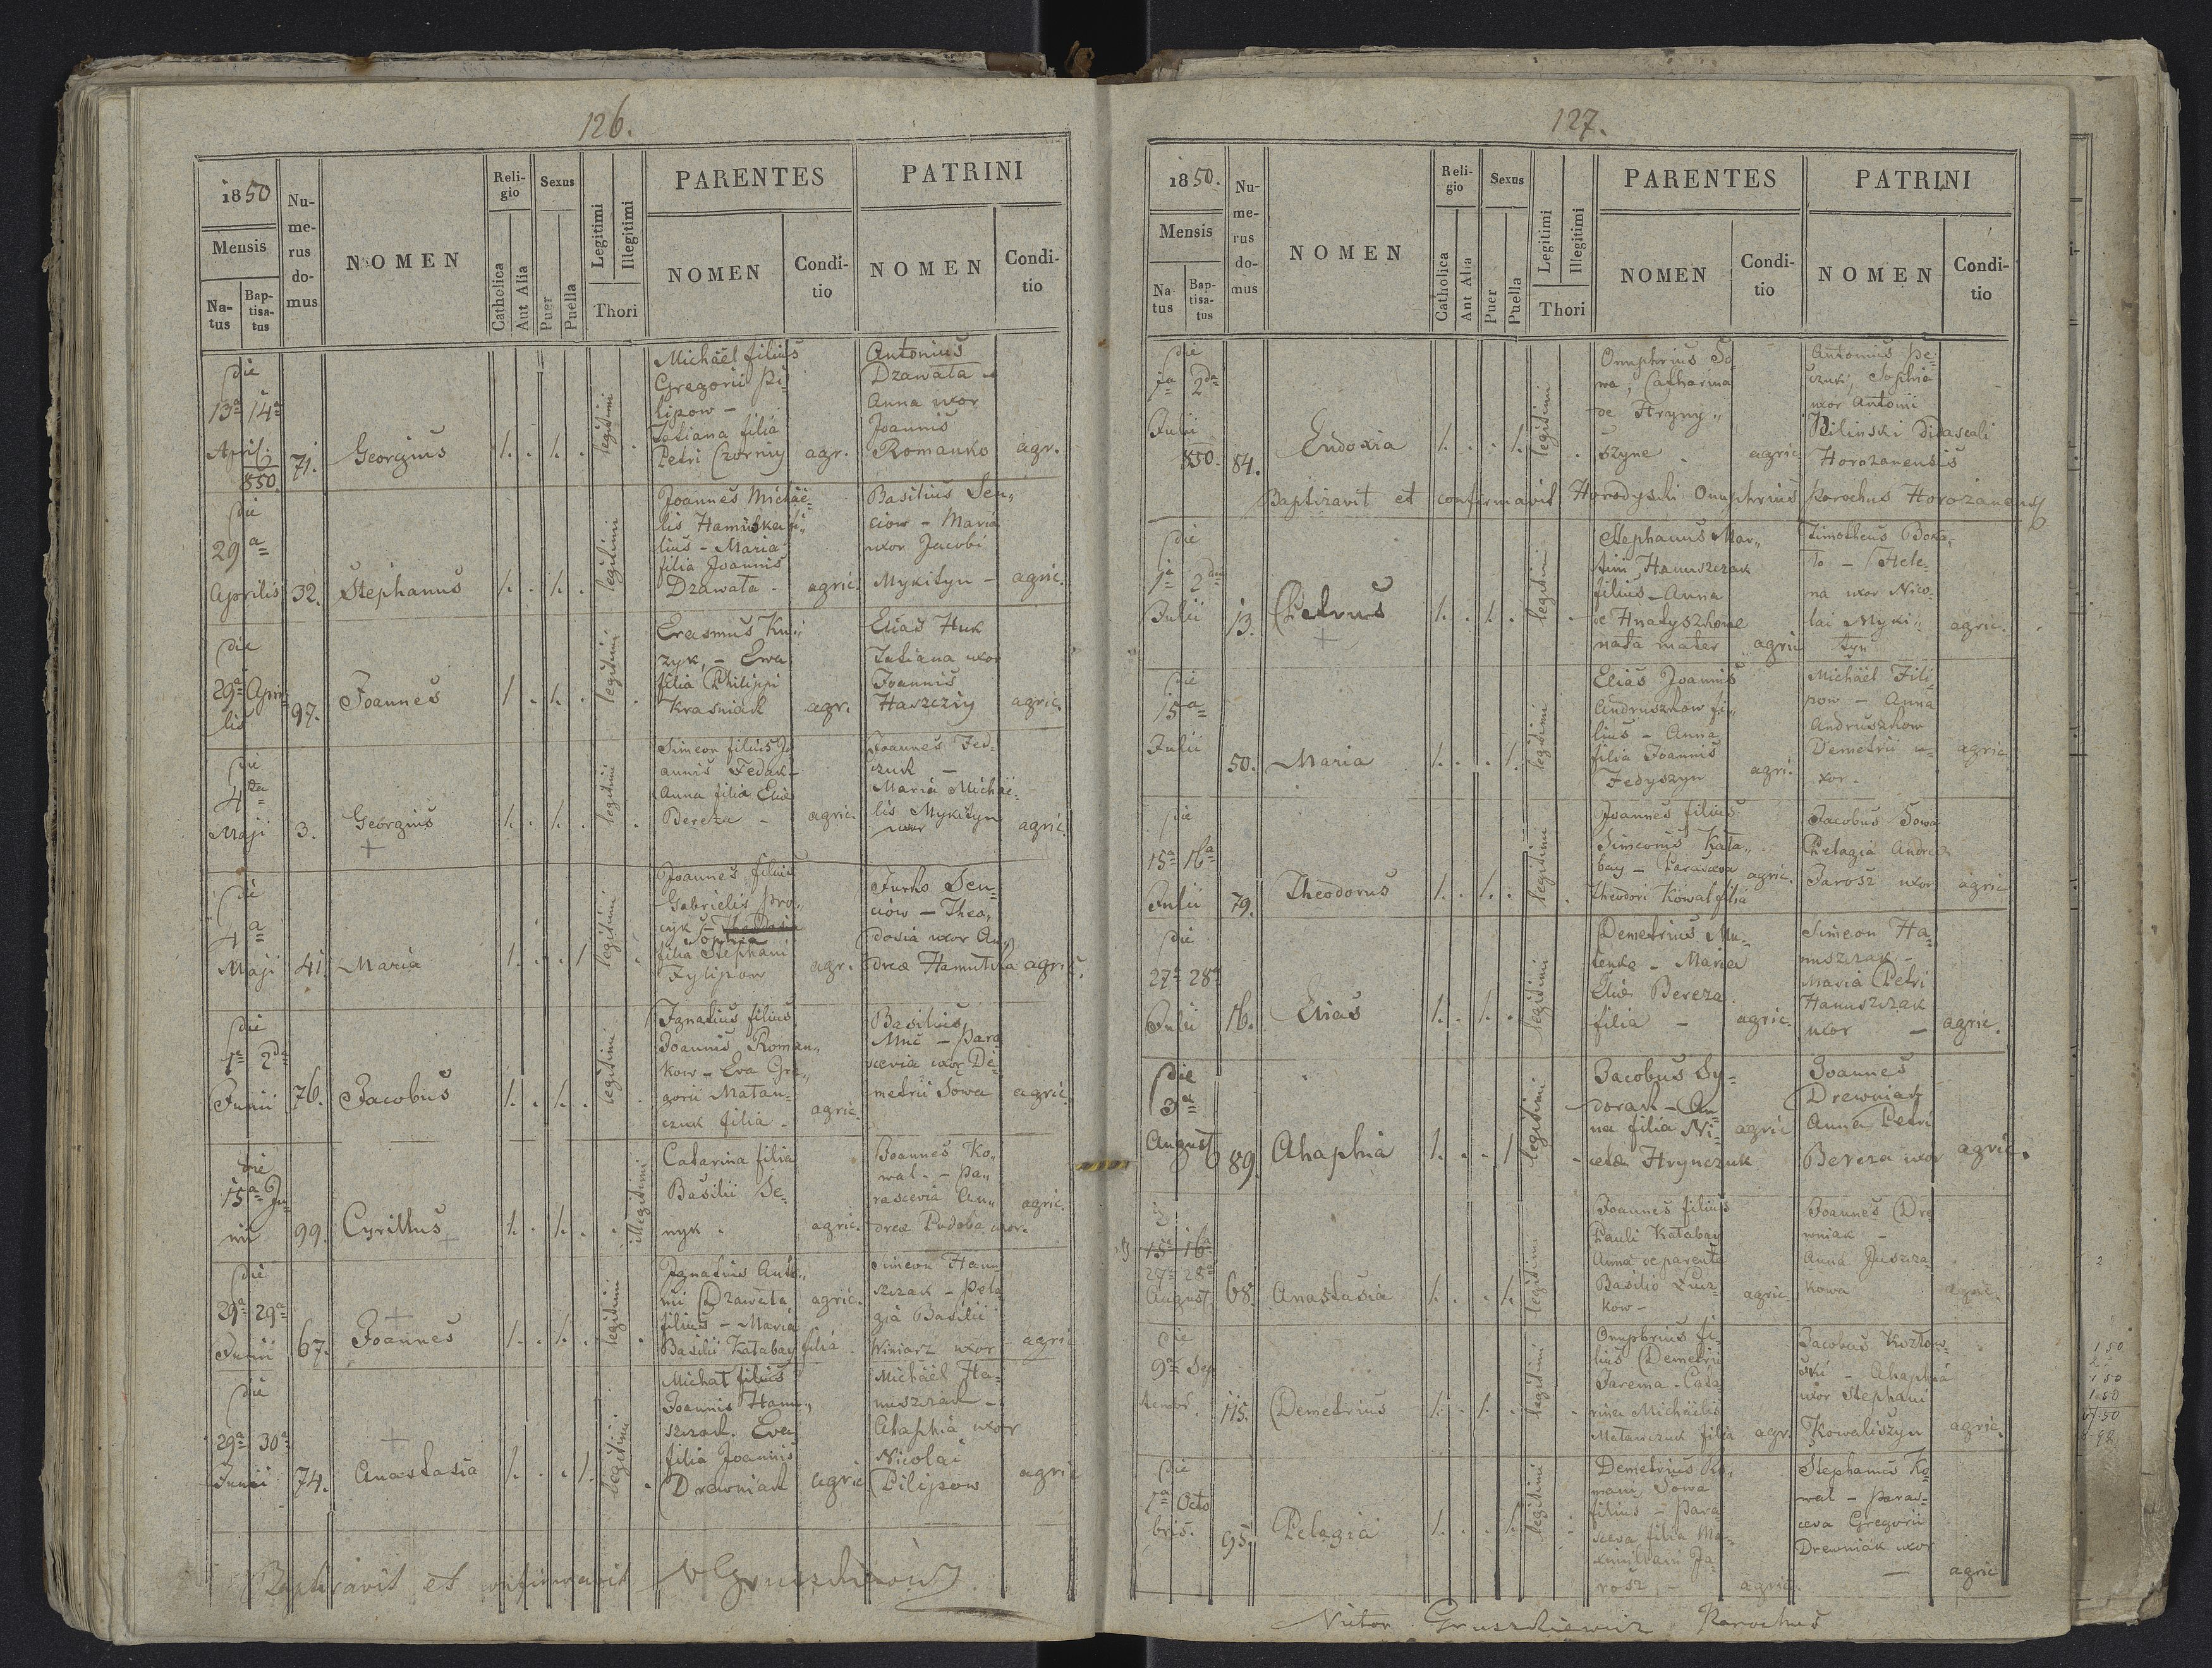 126.
1850
Mensis
Na-
tus
Bap-
tisa-
tus
Nu-
me-
rus
do-
mus
NOMEN
Reli-
gio
Catholica
Aut Alia
Sexus
Puer
Puella
Legitimi
Illegitimi
Thori
PARENTES
NOMEN
Condi-
tio
PATRINI
NOMEN
Condi-
tio
die
13a 14a
April.
850.
71.
Georgius
1. . 1. .
legitimi
Michäel filius
Gregorii Pi-
lipow -
Tatiana filia
Petri Czorniy
agr.
Antonius
Dzawała
Anna uxor
Joannis
Romanko
agr.
die
29a
Aprilis
32.
Stephanus
1. . 1. .
legitimi
Joannes Michäe-
lis Hamiska fi-
lius - Maria
filia Joannis
Dzawała -
agric.
Basilius Sen,,
ciow - Maria
uxor Jacobi
Mykityn -
agric.
die
29a Apri-
lis
97.
Joannes
1 . 1. .
legitimi
Erasmus Ku,,
zyk, - Ewa
filia Philippi
Krasniak
agr.
Elias Huk
Tatiana uxor
Joannis
Haszcziy
agric.
die
4ta
Maji
3.
Georgius
1. . 1. .
legitimi
Simeon filius Jo
annis Fedak -
Anna filia Eliæ
Bereza -
agric.
Joannes Fed-
czuk -
Maria Michäe-
lis Mykityn
uxor
agric.
die
4a
Maji
41.
Maria
1. . . 1
legitimi
Joannes filius
Gabrielis Pro,,
cyk -
Sophia
filia Stephani
Fylipow
agr.
Jurko Sen-
ciow - Theo,
dosia uxor An,,
dreæ Hamulka
agric.
die
1a 2da
Junii
76.
Jacobus
1. . 1. .
legitimi
Ignatius filius
Joannis Roman,,
kow - Eva Gre,,
gorii Matan-
czuk filia -
agric.
Basilius
Mric - Para
scevia uxor De-
metrii Sowa
agric.
die
15a Ju-
nii
99.
Cyrillus
1. . 1. .
illegitimi
Catarina filia
Basilii Se-
nyk .
agric.
Joannes Ko,,
wal - Pa,,
rascevia An,,
dreæ Pudoba uxor.
agric.
die
29a 29a
Junii
67.
Joannes
1. . 1. .
legitimi
Ignatius Anto,,
nii Dzawała
filius - Maria
Basilii Katabay filia
agric.
Simeon Hanu
szczak - Pela
gia Basilii
Winiarz uxor
agric
die
29a 30a
Junii
74.
Anastasia
1. . . 1.
legitimi
Michał filius
Joannis Hanu,,
szczak. Eva
filia Joannis
Drewniak
agric
Michäel Ha-
nuszczak -
Ahaphia uxor
Nicolai
Pilipow
agric
Baptizavit et confirmavit
127.
1850.
Mensis
Na-
tus
Bap-
tisa-
tus
Nu-
me-
rus
do-
mus
NOMEN
Reli-
gio
Catholica
Aut Alia
Sexus
Puer
Puella
Legitimi
Illegitimi
Thori
PARENTES
NOMEN
Condi-
tio
PATRINI
NOMEN
Condi-
tio
die
1a 2da
Julii
850.
84.
Eudoxia
1. . . 1.
legitimi
Onuphrius So
wa, Catharina
de Hryny,,
szyne
agric.
Antonius Pe-
czuk, Sophia
uxor Antonii
Bilinski Didascali
Horożanensis
Baptizavit et confirmavit Horodyski Onuphrius Parochus Horożanensis
die
1a 2da
Julii
13.
Petrus
1. . 1. .
legitimi
Stephanus Mar,,
tini Hanuszczak
filius - Anna
de Hnatyszkone
nata mater
agric
Timotheus Boka,
ło - Hele-
na uxor Nico-
lai Myki,,
tyn
agric.
die
15a
Julii
50.
Maria
1. . . 1.
legitimi
Elias Joannis
Andruszkow fi,,
lius - Anna
filia Joannis
Fedyszyn
agri.
Michäel Fili-
pow - Anna
Andruszkow
Demetrii u-
xor.
agric
die
15a 16a
Julii
79.
Theodorus
1. . 1. .
legitimi
Joannes filius
Simeonis Kata,,
bay - Parasceva
Theodori Kowal filia
agric.
Jacobus Sowa
Pelagia Andreæ
Jarosz uxor
agric
die
27a 28a
Julii
16.
Elias
1. . 1. .
legitimi
Demetrius Mu-
lenko - Maria
Eliæ Bereza
filia -
agric.
Simeon Ha-
nuszczak -
Maria Petri
Hanuszczak
uxor -
agric.
die
3a
August
89.
Ahaphia
1. . . 1
legitimi
Jacobus Sy-
dorak - An-
na filia Ni-
cetæ Hrynczuk
agric
Joannes
Drewniak
Anna Petri
Bereza uxor
agric.
15a 16a
27a 28a
August
68.
Anastasia
1. . . 1.
legitimi
Joannes filius
Pauli Katabay
Anna de parente
Basilio Łucz-
kow -
agric.
Joannes Dre
wniak -
Anna Juszcza-
kowa
agric.
die
9a Sep
tembr.
115.
Demetrius
1. . 1. .
legitimi
Onuphrius fi-
lius Demetrii
Jarema - Cata-
rina Michäelis
Matanczuk filia
agr.
Jacobus Kozłow-
ski - Ahaphia
uxor Stephani
Kowaliszyn
agric.
die
1a Octo
bris.
95.
Pelagia
1. . . 1.
legitimi
Demetrius Ro,,
mani Sowa
filius - Para
sceva filia Ma-
ximiliani Ja-
rosz -
agric.
Stephanus Ko-
wal - Paras-
ceva Gregorii
Drewniak uxor
agric
Victor Gruszkiewicz Parochus